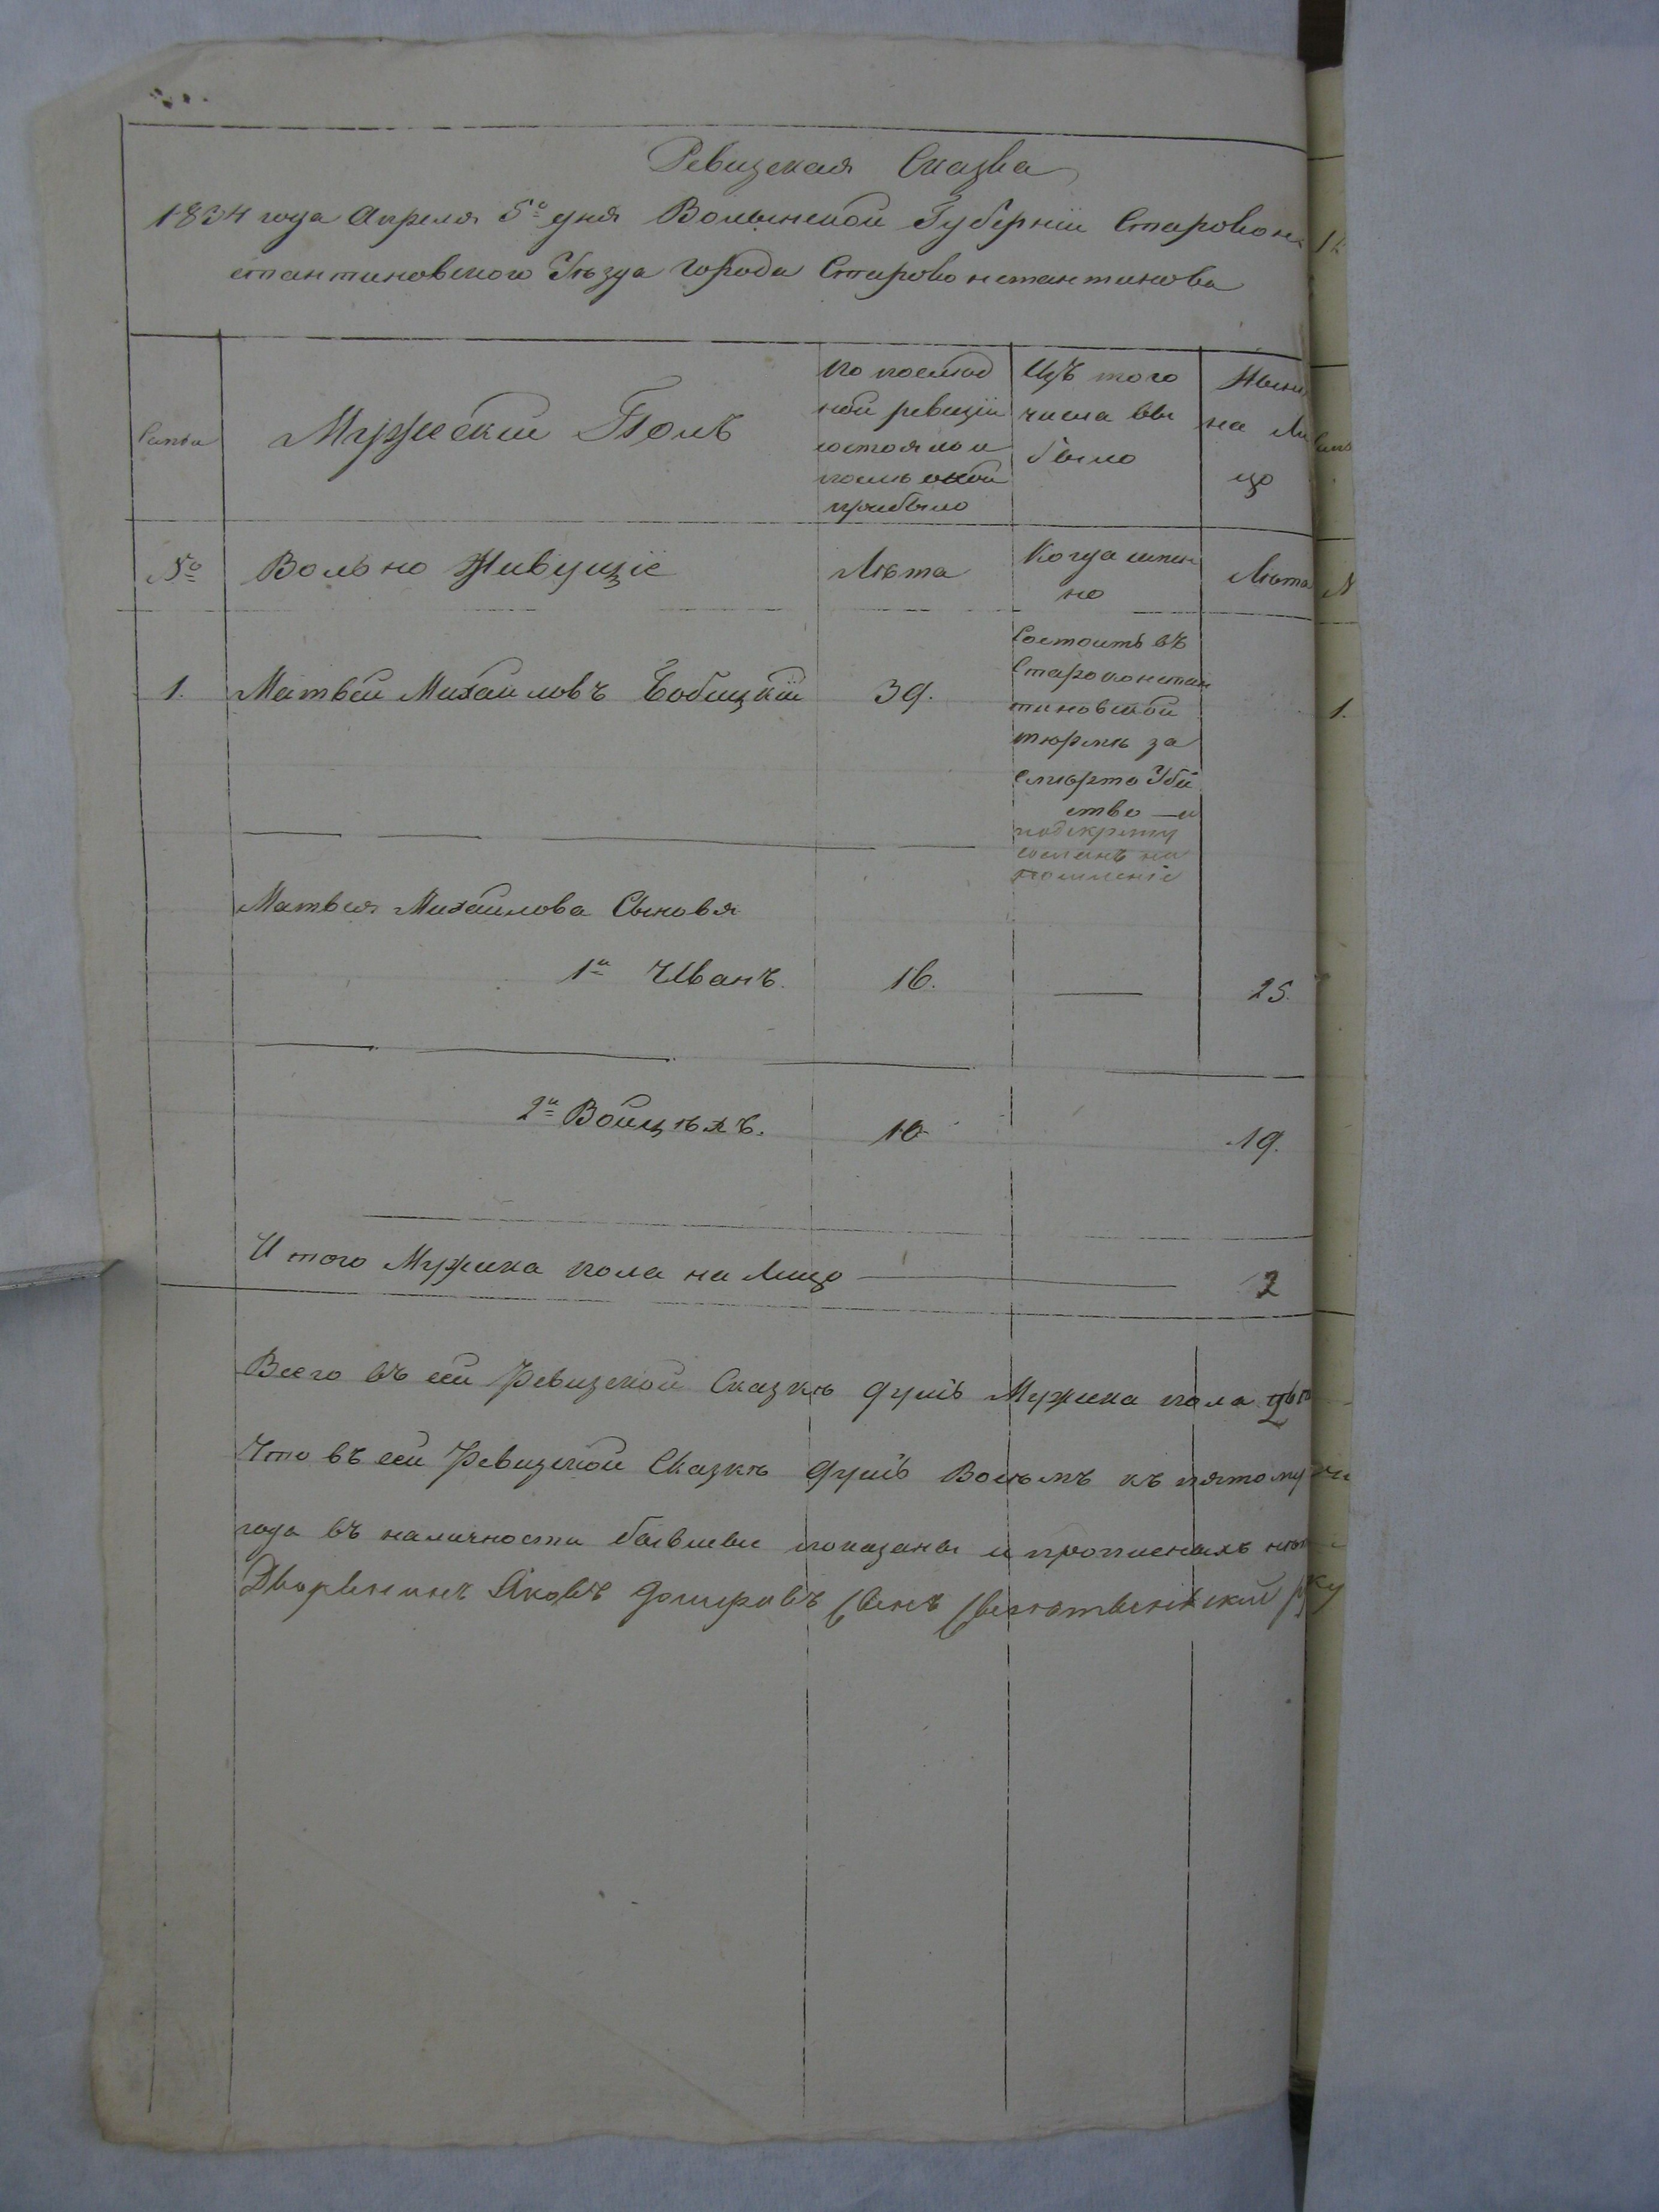 Ревизская Сказка
1834 года Апреля 5го дня Волынской Губернiи Старокон
стантиновского Уѣзда города Староконстантинова
Семьи
Мужеский Полъ
по послѣд
ней ревизiи
состояло и
послѣ оной
прибыло
Изъ того
числа вы
было
Нынѣ
на Ли
цо
№
Вольно Живущiе
Лѣта
Когда имян
но
Лѣта
1.
Матвѣй Михайловъ Бобицкiй
39.
Состоитъ въ
Староконстан
тиновской
тюрмѣ за
смерто Убiй
ство — и
сосланъ на
1.
Матвея Михайлова Сыновья
1й Иванъ.
16.
25.
2й Войцѣхъ.
10
19.
И того Мужска пола на Лицо
2
Всего въ сей Ревизской Сказкѣ душъ Мужска пола
Что въ сей Ревизской Сказкѣ душъ къ пятому
года въ наличности бывшiе показаны и прописныхъ
Дворянинъ Яковъ Сынъ